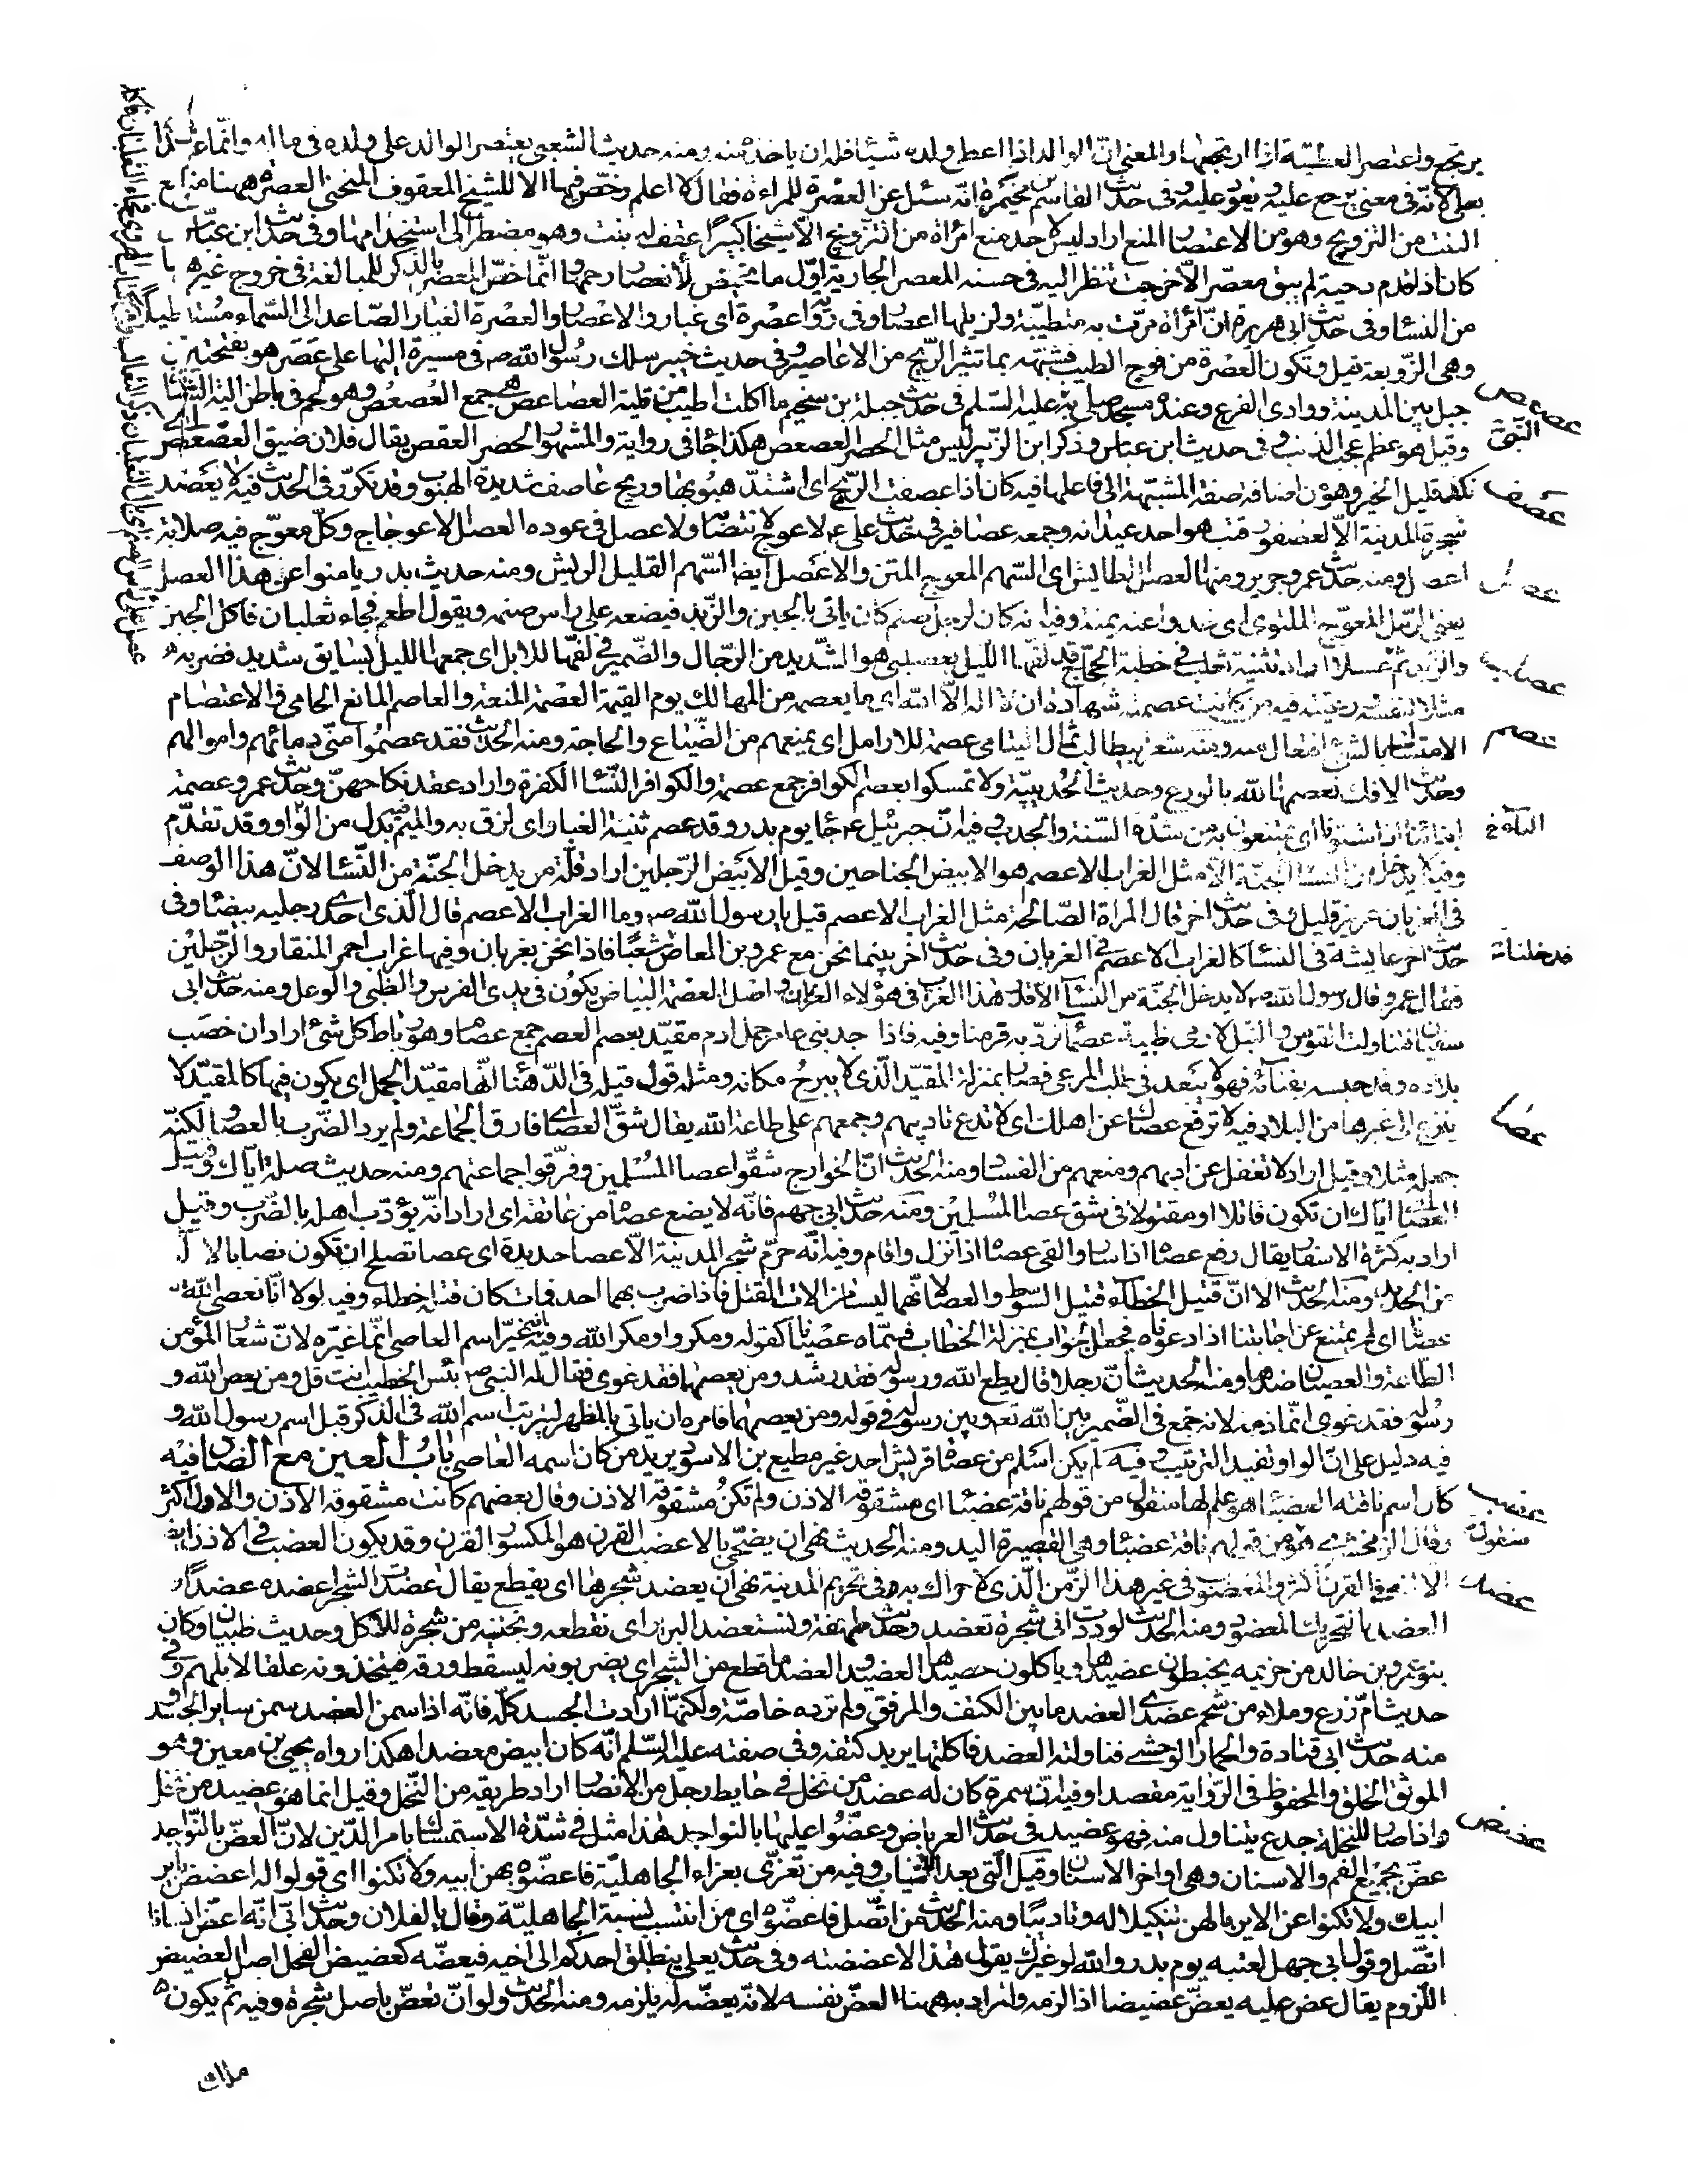 يرتجع واعتصر العطية اذا ارتجعها والمعنى انّ الوالد اذا اعطى ولده شيئا فله ان ياخذه منه ومنه حديث الشعبى يعتصر الوالد على ولده فى ماله وانّما عدّاه
بعلى لانّه فى معنى يرجع عليه ويعود عليه وفى حديث القاسم بن مخيمرة انّه سئل عن العصرة للمراءة فقال لا اعلم رخّص فيها الا للشيخ المعقوف المنحنى العصرة ههنا منع
البنت من التزويج وهو من الاعتصار المنع اراد ليس لاحد منع امراة من التزويج الّا شيخا كبيرا اعقف له بنت وهو مضطر الى استخدامها وفى حديث ابن عبّاس
كان اذا قدم دحية لم يبق معصر الّا خرجت تنظر اليه فى حسنه المعصر الجارية اوّل ما تحيض لانعصار رحمها وانّما خصّ المعصر بالذكر للمبالغة فى خروج غيرها
من النسا وفى حديث ابى هريرة انّ امراة مرّت به متطيّبة ولذيلها اعصار وفى رواية عصرة اى غبار والاعصار والعصرة الغبار الصّاعد الى السّماء مستطيلا
وهى الزّوبعة قيل وتكون العصرة من فوح الطيب فشبّهه بما تثير الرّيح من الاعاصير وفى حديث خيبر سلك رسول الله صم فى مسيرة اليها على عصر هو بفتحتين
جبل بين المدينة ووادى الفرع وعنده مسجد صلّى به عليه السّلم فى حديث جبلة بن سحيم ما اكلت اطيب من قلية العصاعص هى جمع العصعص وهو لحم فى باطن الية الشاة
وقيل هو عظم عجب الذنب وفى حديث ابن عباس وذكر ابن الزبير ليس مثل الحصر العصعص هكذا جا فى رواية والمشهور الحصر العقص يقال فلان ضيق العصعص اى
نكد قليل الخير وهو من اضافة صفة المشبّهة الى فاعلها فيه كان اذا عصفت الريح اى اشتدّ هبوبها وريح عاصف شديدة الهبوب وقد تكرّر فى الحديث فيه لا يعضد
شجرة المدينة الّا لعصفور قتب هو احد عيدانه وجمعه عصافير فى حديث على عم لا عوج لانتصابه ولا عصل فى عوده العصل الاعوجاج وكلّ معوّج فيه صلابة
اعصل ومنه حديث عمر وجرير ومنها العصل الطائش اى السّهم المعوج المتن والاعصل ايضا السّهم القليل الريش ومنه حديث بدر يامنوا عن هذا العصل
يعنى الرّمل المعوّج الملتوى اى خذوا عنه يمنة وفيه انه كان لرجل صنم كان ياتى بالجبن والزّبد فيضعه على راس صنمه ويقول اطعم فجاء ثعلبان فاكل الجبن
والزبد ثم عسلا اراد تثنية ثعلب فى خطبة الحجّاج قد لفّها الليل بعصلبى هو الشّديد من الرّجال والضّمير فى لفّها للابل اى جمعها الليل بسايق شديد فضربه
مثلا لنفسه ورعيته فيه من كانت عصمته شهادة ان لا اله الّا الله اى ما يعصمه من المهالك يوم القيمة العصمة المنعة والعاصم المانع الحامى والاعتصام
الامتساك بالشئ افتعال منه ومنه شعر ابيطالب ثمال اليتامى عصمة للارامل اى يمنعهم من الضّياع والحاجة ومنه الحديث فقد عصموا منّى دمائهم واموالهم
وحديث الافك فعصمها الله بالورع وحديث الحديبيّة ولا تمسكوا بعصم الكوافر جمع عصمة والكوافر النّسا الكفرة واراد عقد نكاحهنّ وحديث عمر وعصمة
ابنائنا اذا شتونا اى يمتنعون به من شدّة السّنة والجدب وفيه انّ جبرئيل عم جا يوم بدر وقد عصم ثنيته الغبار اى لزق به والميم فيه بدل من الواو وقد تقدّم
وفيه لا يدخل من النسا الجنّة الّا مثل الغراب الاعصم هو الابيض الجناحين وقيل الابيض الرّجلين اراد قلّة من يدخل الجنّة من النّسا لانّ هذا الوصف
فى الغربان عزيز قليل وفى حديث اخر قال المراة الصّالحة مثل الغراب الاعصم قيل يا رسول الله صم وما الغراب الاعصم قال الّذى احدى رجليه بيضا وفى
حديث اخر عايشة فى النسا كالغراب الاعصم فى الغربان وفى حديث اخر بينما نحن مع عمرو بن العاص شعبا فاذا نحن بغربان وفيها غراب احمر المنقار والرّجلين
فقال عمرو قال رسول الله صم لا يدخل الجنّة من النسا الّا قدر هذا الغراب فى هؤلاء الغربان واصل العصمة البياض يكون فى يدى الفرس والظّبى والوعل ومنه حديث ابى
سفيان فتناولت القوس والنبل لارمى ظبية عصما نردّ به قرمنا وفيه فاذا جد بنى عامر جمل ادم مقيّد بعصم العصم جمع عصام وهو رباط كل شئ اراد ان خصب
بلاده قد حبسه بفنائه فهو لا يبعد فى طلب المرعى فصار بمنزلة المقيّد الّذى لا يبرح مكانه ومثله قول قيلة فى الدّهنا انّها مقيّد الجمل اى يكون فيها كالمقيّد لا
ينزع الى غيرها من البلاد فيه لا ترفع عصاك عن اهلك اى لا تدع تاديبهم وجمعهم على طاعة الله يقال شقّ العصا اى فارق الجماعة ولم يرد الضّرب بالعصا ولكنّه
جعله مثلا وقيل اراد لا تغفل عن ادبهم ومنعهم من الفساد ومنه الحديث انّ الخوارج شقّوا عصا المسلمين وفرّقوا جماعتهم ومنه حديث صلة ايّاك وقتيل
العصا اى ايّاك ان تكون قاتلا او مقتولا فى شق عصا المسلمين ومنه حديث ابى جهم فانّه لا يضع عصاه عن عاتقه اى اراد انّه يؤدّب اهله بالضّرب وقيل
اراد به كثرة الاسفار يقال رفع عصاه اذا سار والقى عصاه اذا نزل واقام وفيه انّه حرّم شجر المدينة الّا عصا حديدة اى عصا تصلح ان تكون نصابا لالة
من الحديد ومنه الحديث الا انّ قتيل الخطاء قتيل السّوط والعصا لانّهما ليسا من الات القتل فاذا ضرب بهما احد فمات كان قتله خطاء وفيه لولا انّا نعصى الله
عصانا اى لم يمتنع عن اجابتنا اذا دعوناه فجعل الجواب بمنزلة الخطاب فسمّاه عصيانا كقوله ومكروا ومكر الله وفيه انه غيّر اسم العاصى انّما غيّره لانّ شعار المؤمن
الطّاعة والعصيان ضدها ومنه الحديث انّ رجلا قال من يطع الله ورسوله فقد رشد ومن يعصهما فقد غوى فقال له النبى صم بئس الخطيب انت قل ومن يعص الله و
رسوله فقد غوى انّما ذمه لانه جمع فى الضّمير بين الله تع وبين رسوله فى قوله ومن يعصهما فامره ان ياتى بالمظهر ليترتب اسم الله فى الذكر قبل اسم رسول الله و
فيه دليل على انّ الواو تفيد الترتيب وفيه لم يكن اسلم من عصاة قريش احد غير مطيع بن الاسود يريد من كان اسمه العاصى باب العين مع الضاد فيه
كان اسم ناقته العضبا هو علم لها منقول من قولهم ناقة عضبا اى مشقوقة الاذن ولم تكن مشقوقة الاذن وقال بعضهم كانت مشقوقة الاذن والاول اكثر
وقال الزمخشرى هو من قولهم ناقة عضبا وهى القصيرة اليد ومنه الحديث نهى ان يضحّى بالاعضب القرن هو المكسور القرن وقد يكون العضب فى الاذن ايضا
الا انه فى القرن اكثر والمعضوب فى غير هذا الزّمن الّذى لا حراك به وفى تحريم المدينة نهى ان يعضد شجرها اى يقطع يقال عضدت الشجر اعضده عضدا و
العضد بالتحريك المعضود ومنه الحديث لوددت انى شجرة تعضد وحديث طهفة ونستعضد البرير اى نقطعه ونجنيه من شجره للاكل وحديث ظبيان وكان
بنو عمرو بن خالد من جزيمه يخبطون عضيدها وياكلون حصيدها العضيد والعضد ما قطع من الشجر اى يضربونه ليسقط ورقه فيتخذونه علفا لابلهم وفى
حديث امّ زرع وملاء من شحم عضدى العضد ما بين الكتف والمرفق ولم ترده خاصّة ولكنّها ارادت الجسد كلّه فانّه اذا سمن العضد سمن ساير الجسد و
منه حديث ابى قتادة والحمار الوحشى فناولته العضد فاكلها يريد كتفه وفى صفته عليه السّلم انّه كان ابيض معضدا هكذا رواه يحيى بن معين وهو
الموثق الخلق والمحفوظ فى الرّواية مقصدا وفيه انّ سمرة كان له عضد من نخل فى حايط رجل من الانصار اراد طريقه من النّخل وقيل انما هو عضيد من نخل
واذا صار للنخلة جذع يتناول منه فهو عضيد فى حديث العرباض وعضّوا عليها بالنواجذ هذا مثل فى شدّة الاستمساك بامر الدّين لانّ العضّ بالنّواجذ
عضّ بجميع الفم والاسنان وهى اواخر الاسنان وقيل الّتى بعد الانياب وفيه من تعزّى بعزاء الجاهليّة فاعضّوه بهن ابيه ولا تكنوا اى قولوا له اعضض باير
ابيك ولا تكنوا عن الاير بالهن تنكيلا له وتاديبا ومنه الحديث من اتّصل فاعضّوه اى من انتسب نسبة الجاهليّة وقال يا لفلان وحديث ابىّ انّه اعضّ انسانا
اتّصل وقول ابى جهل لعتبه يوم بدر والله لو غيرك يقول هذا لاعضضته وفى حديث يعلى ينطلق احدكم الى اخيه فيعضّه كعضيض الفحل اصل العضيض
اللّزوم يقال عض عليه يعضّ عضيضا اذا لزمه والمراد به ههنا العضّ نفسه لانّه يعضّه له يلزمه ومنه الحديث ولو انّ تعضّ باصل شجرة وفيه ثم يكون
عصعص
عصف
عصل
عصلب
عصم
عصا
عضب
منقول
عضد
عضض
ملك